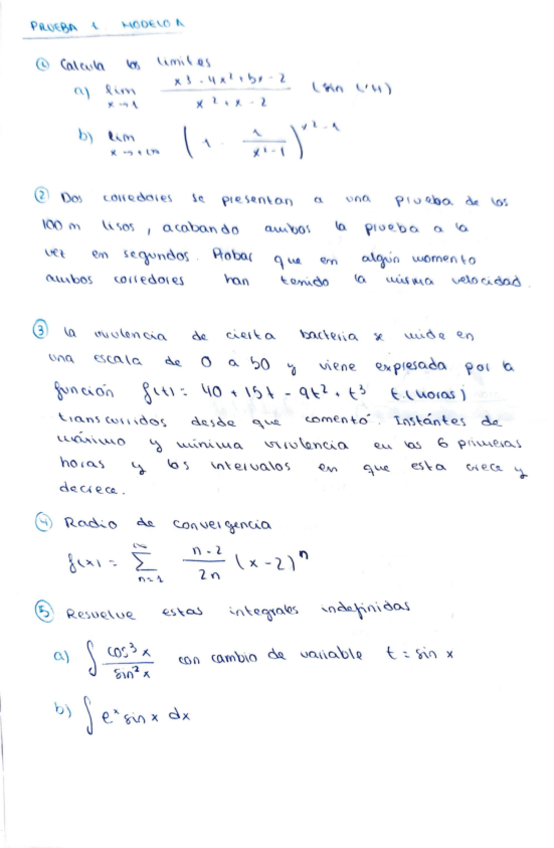 PRUEBA 1 MODELO A
① Calcula los límites
a) lim x→1 x3 - 4x2 + 5x - 2 / x2 + x - 2 (sin L'H)
b) lim x→+∞ ( 1 - 1 / x2-1 )^x2-1
② Dos corredores se presentan a una prueba de los
100 m lisos, acabando ambos la prueba a la
vez en segundos. Probar que en algún momento
ambos corredores han tenido la misma velocidad.
③ La virulencia de cierta bacteria se mide en
una escala de 0 a 50 y viene expresada por la
función f(t) = 40 + 15t - 9t2 + t3 t.(horas)
transcurridos desde que comentó. Instántes de
máximo y mínima virulencia en las 6 primeras
horas y los intervalos en que esta crece y
decrece.
④ Radio de convergencia
f(x) = ∑ n=1 ∞ n-2 / 2n (x-2)^n
⑤ Resuelve estas integrales indefinidas
a) ∫ cos3 x / sin2 x con cambio de variable t = sin x
b) ∫ e^x sin x dx